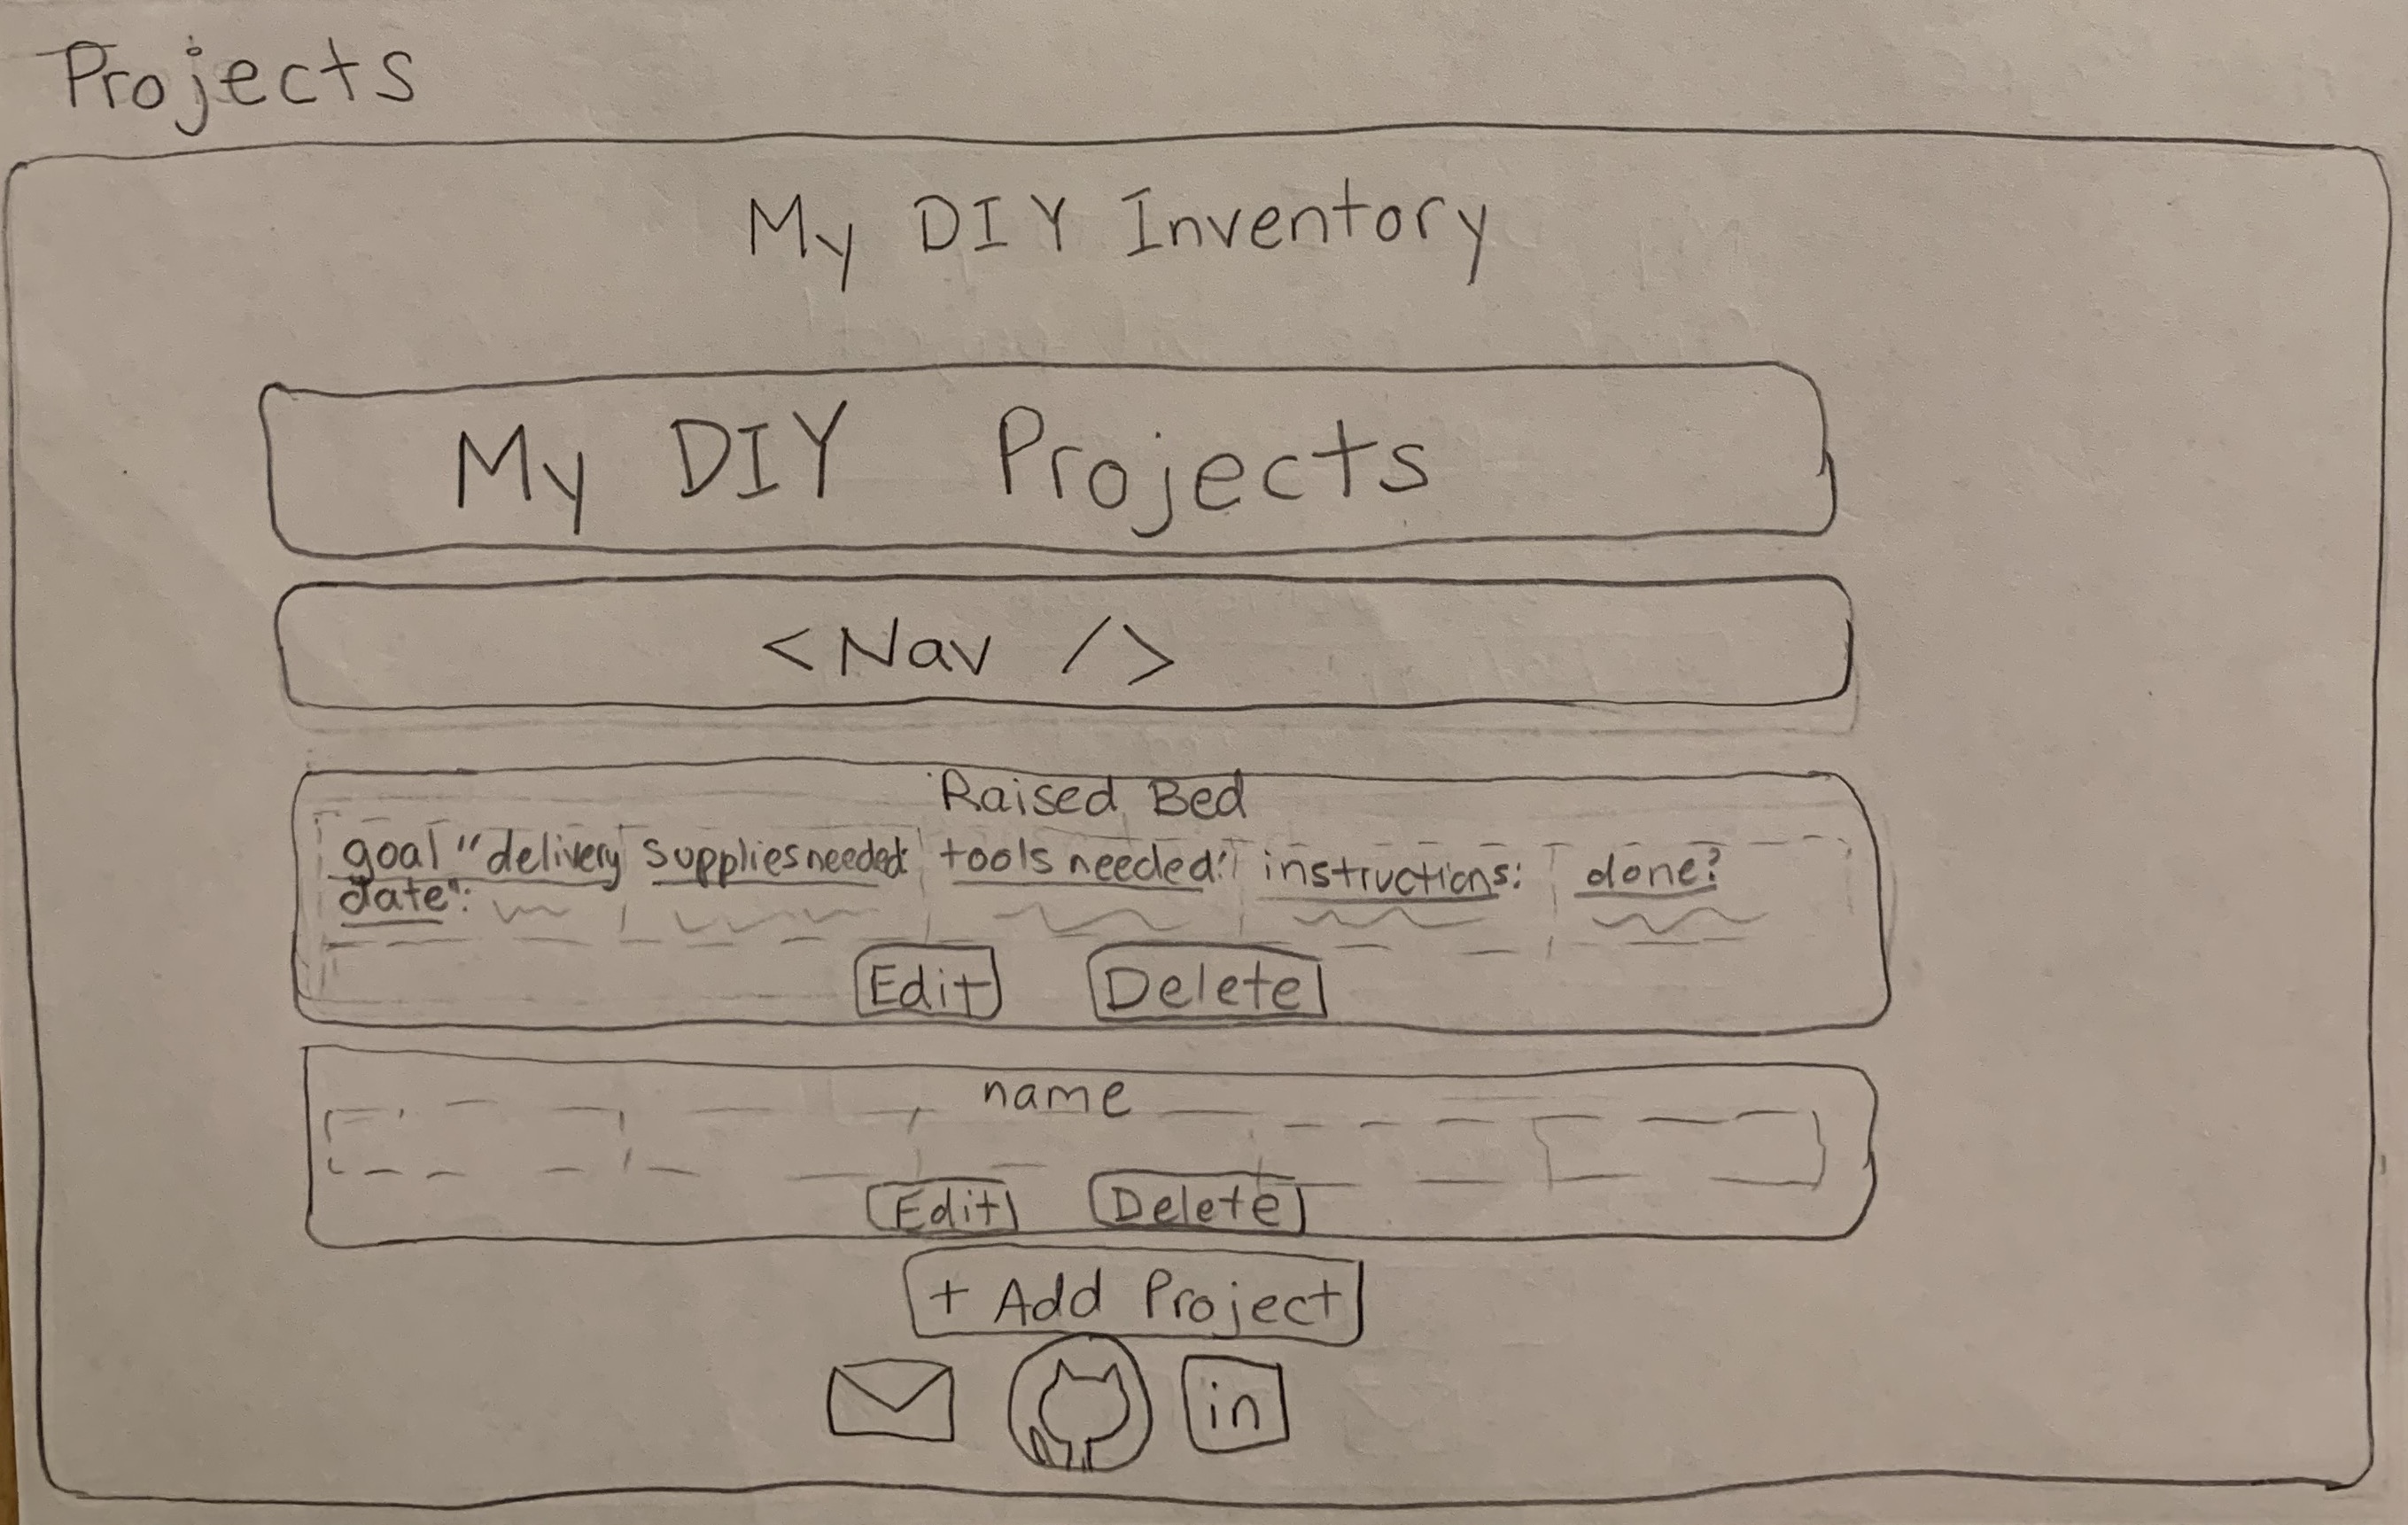 Projects
My DIY Inventory
My DIY Projects
<Nav />
Raised Bed
goal "delivery date": supplies needed: tools needed: instructions: done?
Edit Delete
name
Edit Delete
+ Add Project
in